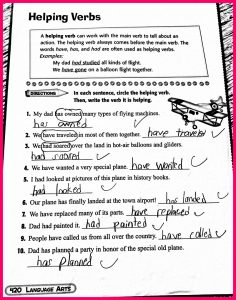 Helping Verbs
A helping verb can work with the main verb to tell about an
action. The helping verb always comes before the main verb. The
words have, has, and had are often used as helping verbs.
Examples:
My dad had studied all kinds of flight.
We have gone on a balloon flight together.
DIRECTIONS In each sentence, circle the helping verb.
Then, write the verb it is helping.
1. My dad has owned many types of flying machines.
has owned
2. We have traveled in most of them together. have traveled
3. We had soared over the land in hot-air balloons and gliders.
had soared
4. We have wanted a very special plane. have wanted
5. I had looked at pictures of this plane in history books.
had looked
6. Our plane has finally landed at the town airport! has landed
7. We have replaced many of its parts. have replaced
8. Dad had painted it. had painted
9. People have called us from all over the country. have called
10. Dad has planned a party in honor of the special old plane.
has planned
420 LANGUAGE ARTS